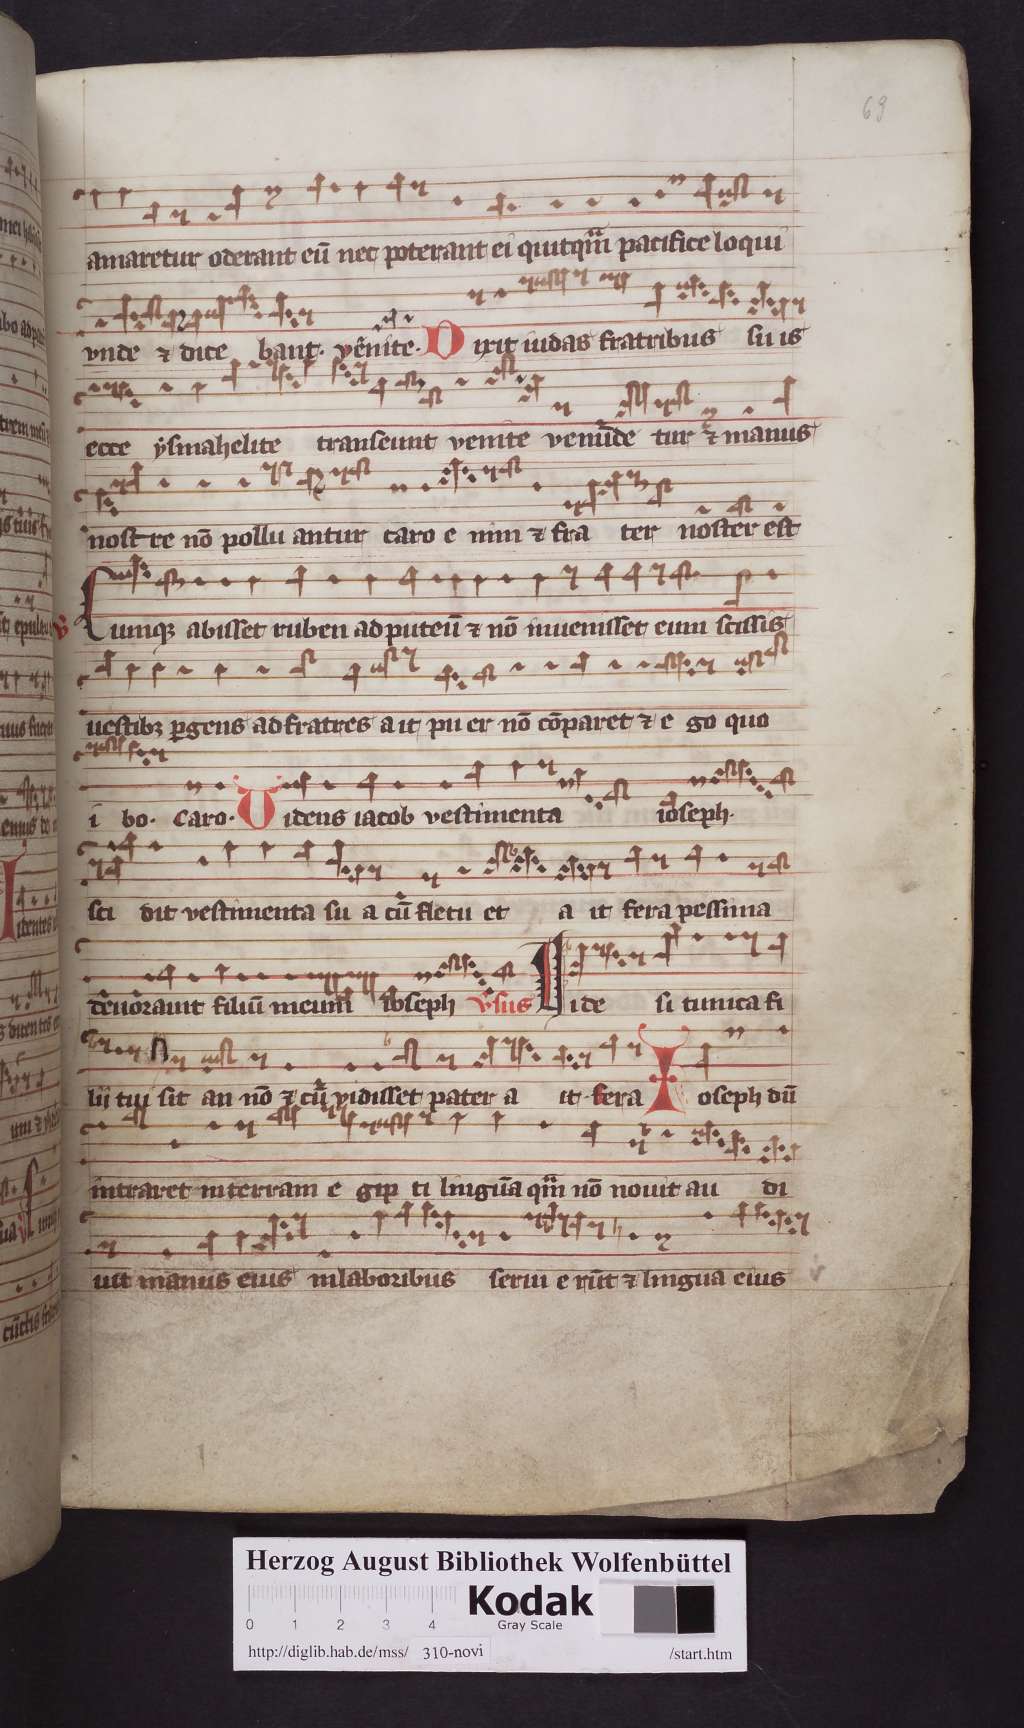 69
amaretur oderant eū nec poterant ei quitqm̄ pacifice loqui
vnde ⁊ dice bant. venite. Dixit iudas fratribus su is
ecce ysmahelite transeunt venite venu̅de tur ⁊ manus
nost re nō pollu antur caro e nim ⁊ fra ter noster est
Cumqꝫ abisset ruben ad puteū ⁊ nō inuenisset eum scissis
uestibꝫ ꝑgens ad fratres a it pu er nō cōparet ⁊ e go quo
i bo. caro. Uidens iacob vestimenta ioseph.
sci dit vestimenta su a cū fletu et a it fera pessima
deuorauit filiū meum ioseph v̕sus Uide si tunica fi
lii tui sit an nō ⁊ cū vidisset pater a it. fera Ioseph dū
intraret in terram e gip ti linguā qm̄ nō nouit au di
uit manus eius in laboribus serui e rūt ⁊ lingua eius
Herzog August Bibliothek Wolfenbüttel
Kodak
Gray Scale
0 1 2 3 4
http://diglib.hab.de/mss/ 310-novi /start.htm